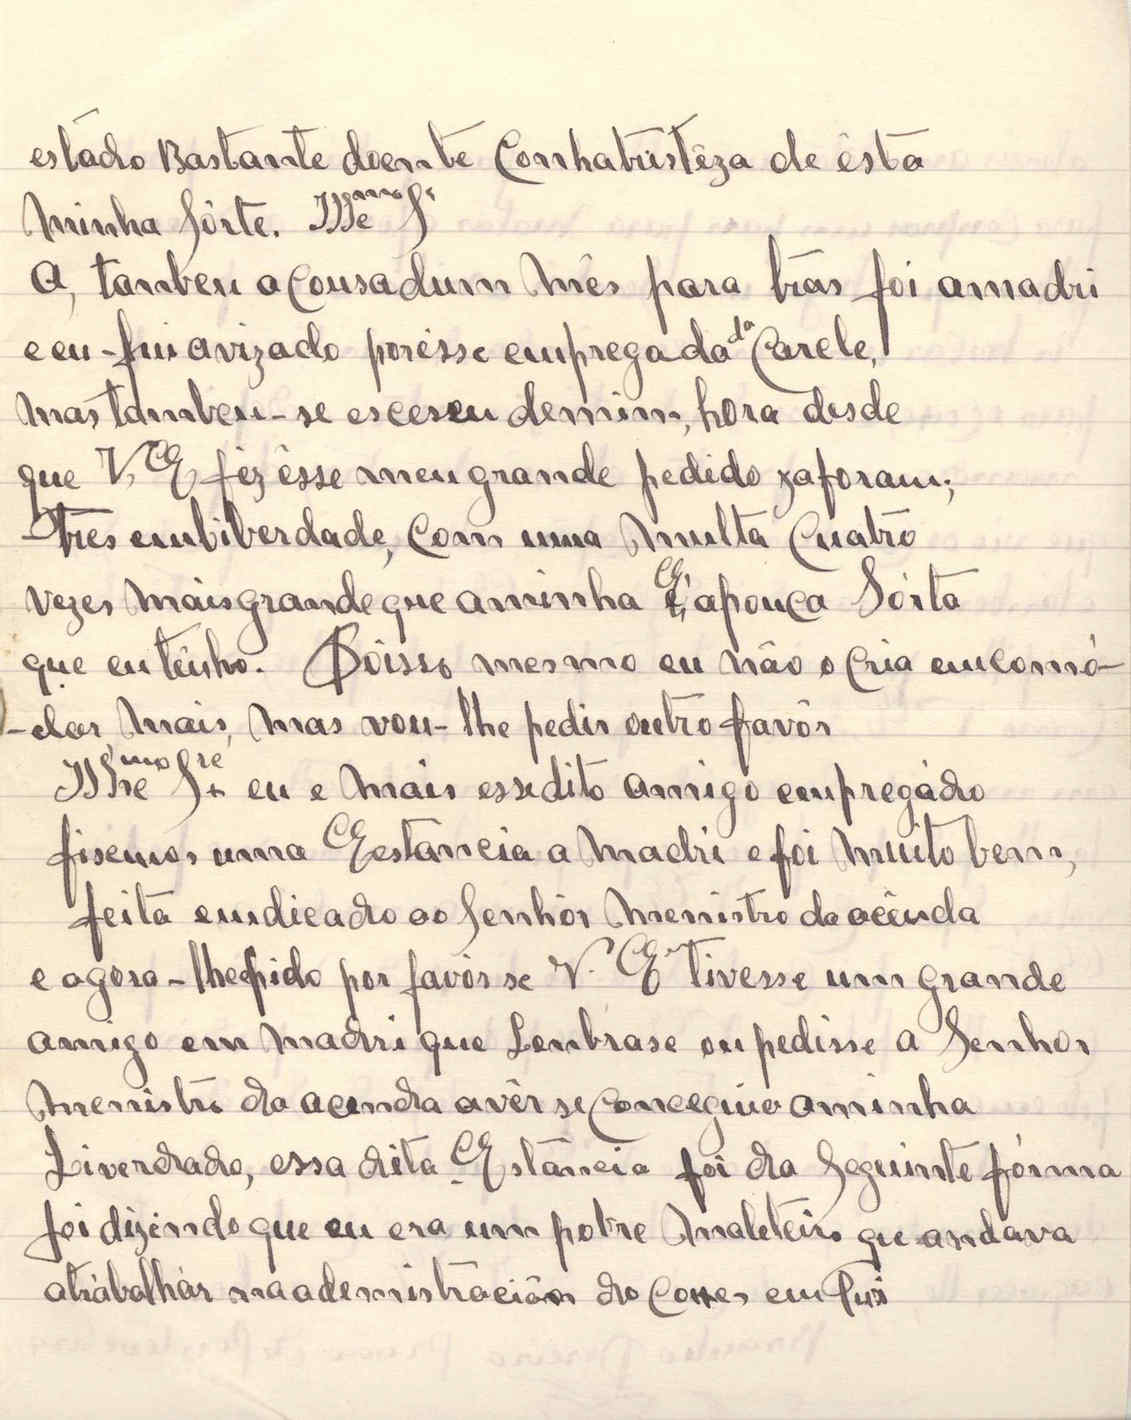 estádo Bastante doente Comhatristêza de ésta
minha Sôrte. Illmo Exmo Sr
A, tanben a Cousa dum mês para trás foi a madri
e eu-fui avizado porésse empregada da Carcle,
mas tanbeu-se esceseu demim, hora desde
que V, CE, féz êsse meu grande pedido zaforam;
-três embiberdade, Com uma multa Cuatro
vezes mais grande que aminha CE, apouca Sórta
que eu tênho. Pôisso mesmo eu não o cria emcomó-
-dar mais, mas vou-lhe pedir outro favôr
Illmo Exmo Sre eu e mais essedito amigo empregádo
fisemos uma CEestancia a madri e foi muito bem,
feita emdicado ao Senhôr menistro da acênda
e agora-lhepido por favôr se V. CE tivesse um grande
amigo em madri que Lenbrase ou pedisse a Senhor
menistro da acenda avêr se Conceguio aminha
Liverdade, essa dita CEstáncia foi da Seguinte fórma
foi dizendo que eu era um pobre maleteiro que andava
atrábalhár na ademistración do Corres em Tui